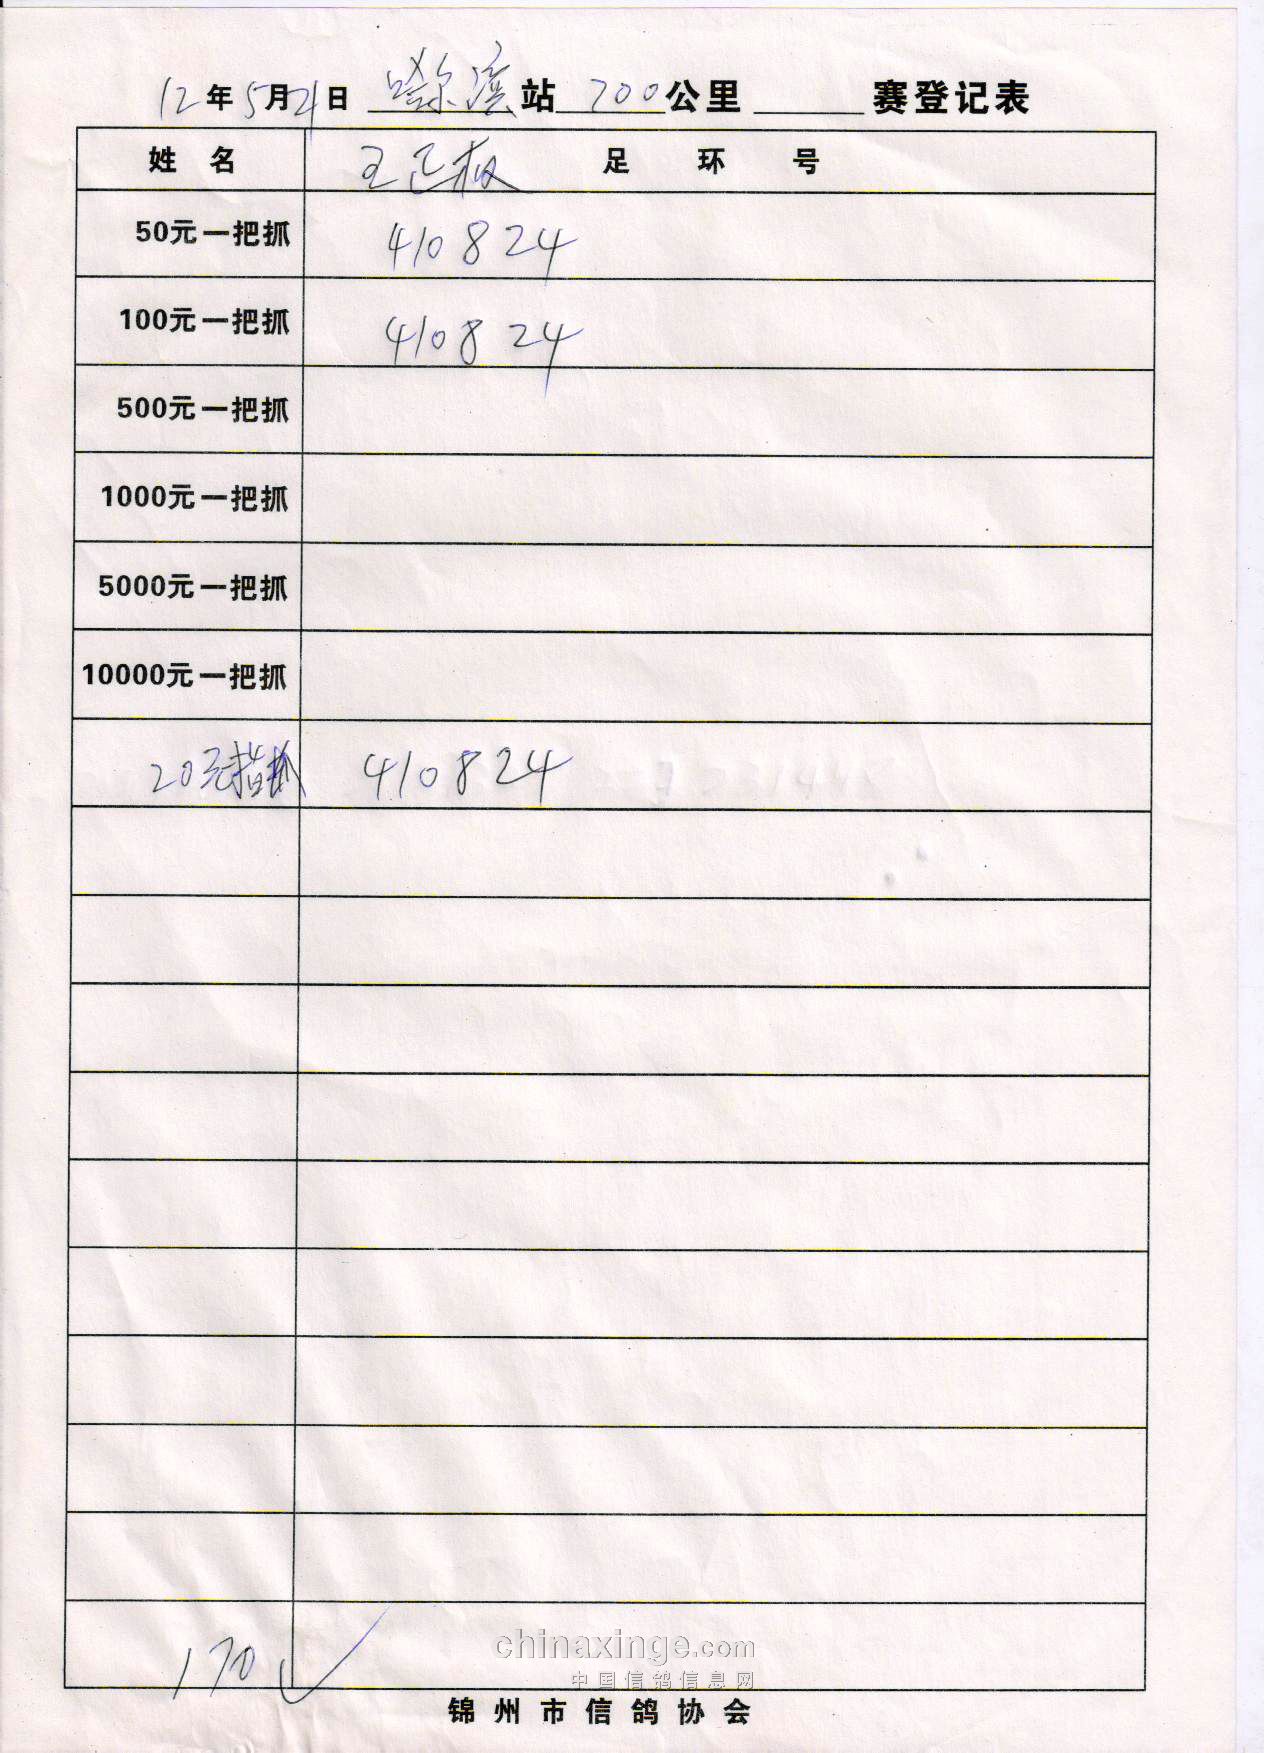 12年5月21日 哈尔滨站 700公里 赛登记表
姓 名 王正权 足 环 号
50元一把抓 410824
100元一把抓 410824
500元一把抓
1000元一把抓
5000元一把抓
10000元一把抓
20元指抓 410824
170
chinaxinge.com
中国信鸽信息网
锦州市信鸽协会